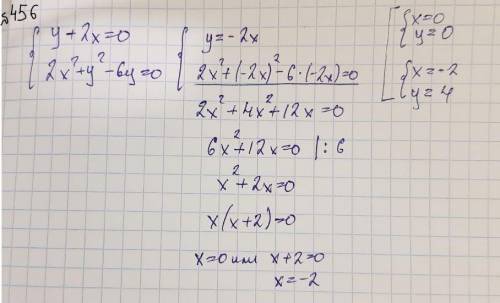 №456
y+2x=0
2x²+y²-6y=0
y=-2x
2x²+(-2x)²-6·(-2x)=0
2x²+4x²+12x=0
6x²+12x=0 |:6
x²+2x=0
x(x+2)=0
x=0 или x+2=0
x=-2
x=0
y=0
x=-2
y=4